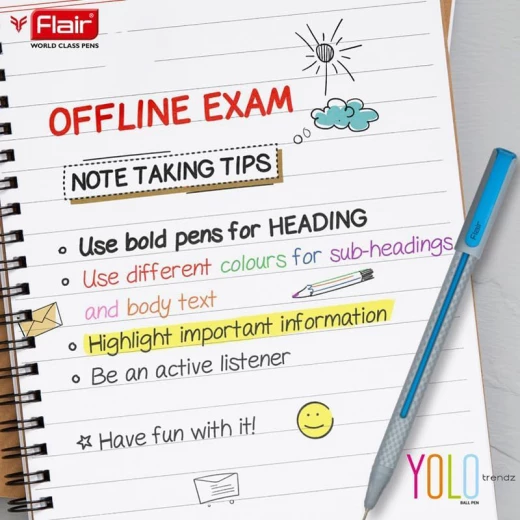 Flair®
WORLD CLASS PENS
OFFLINE EXAM
NOTE TAKING TIPS
Use bold pens for HEADING
Use different colours for sub-headings
and body text
Highlight important information
Be an active listener
Have fun with it!
Flair
YOLO trendz
BALL PEN